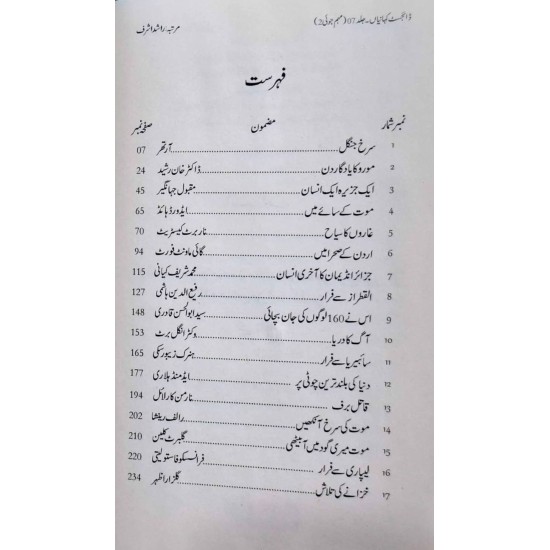 ڈائجسٹ کہانیاں۔ جلد 07 (مہم جوئی 2) مرتبہ راشد اشرف
فہرست
نمبر شمار مضمون صفحہ نمبر
1 سرخ جنگل آرتھر 07
2 مورو کا یادگار دن ڈاکٹر خان رشید 24
3 ایک جزیرہ ایک انسان مقبول جہانگیر 45
4 موت کے سائے میں ایڈورڈ ہائڈ 65
5 غاروں کا سیاح ناربرٹ کیسٹریٹ 70
6 اردن کے صحرا میں گائی ماونٹ فورٹ 94
7 جزائر انڈیمان کا آخری انسان محمد شریف کیانی 115
8 القطراز سے فرار رفیع الدین ہاشمی 127
9 اس نے 160 لوگوں کی جان بچائی سید ابوالحسن قادری 148
10 آگ کا دریا وکٹر انگل برٹ 153
11 سائبیریا سے فرار ہنرک زیبورسکی 165
12 دنیا کی بلند ترین چوٹی پر ایڈمنڈ ہلاری 177
13 قاتل برف نارمن کارلائل 194
14 موت کی سرخ آنکھیں رالف رینشا 202
15 موت میری گود میں آ بیٹھی گلبرٹ کلین 210
16 لیپاری سے فرار فرانسسکو فاستولیتی 220
17 خزانے کی تلاش گلزار اظہر 234